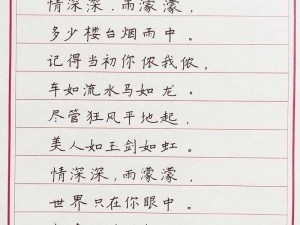 情深深，雨濛濛，
多少楼台烟雨中。
记得当初你侬我侬，
车如流水马如龙。
尽管狂风平地起，
美人如玉剑如虹。
情深深，雨濛濛，
世界只在你眼中。